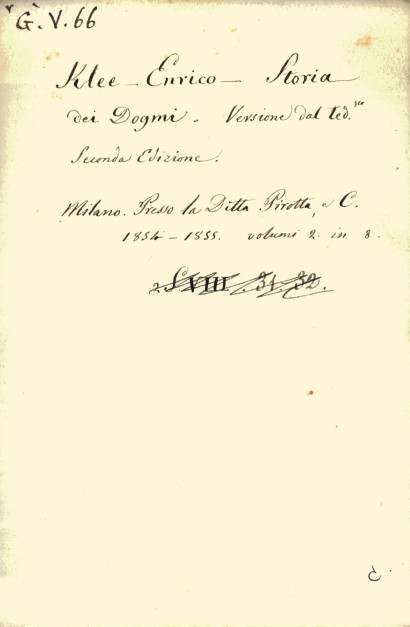 G. V. 66
Klee — Enrico — Storia
dei Dogmi. Versione dal ted.sco
Seconda Edizione.
Milano. Presso la Ditta Pirotta, e C.
1854 — 1855. volumi 2. in 8.
VIII. 31. 32.